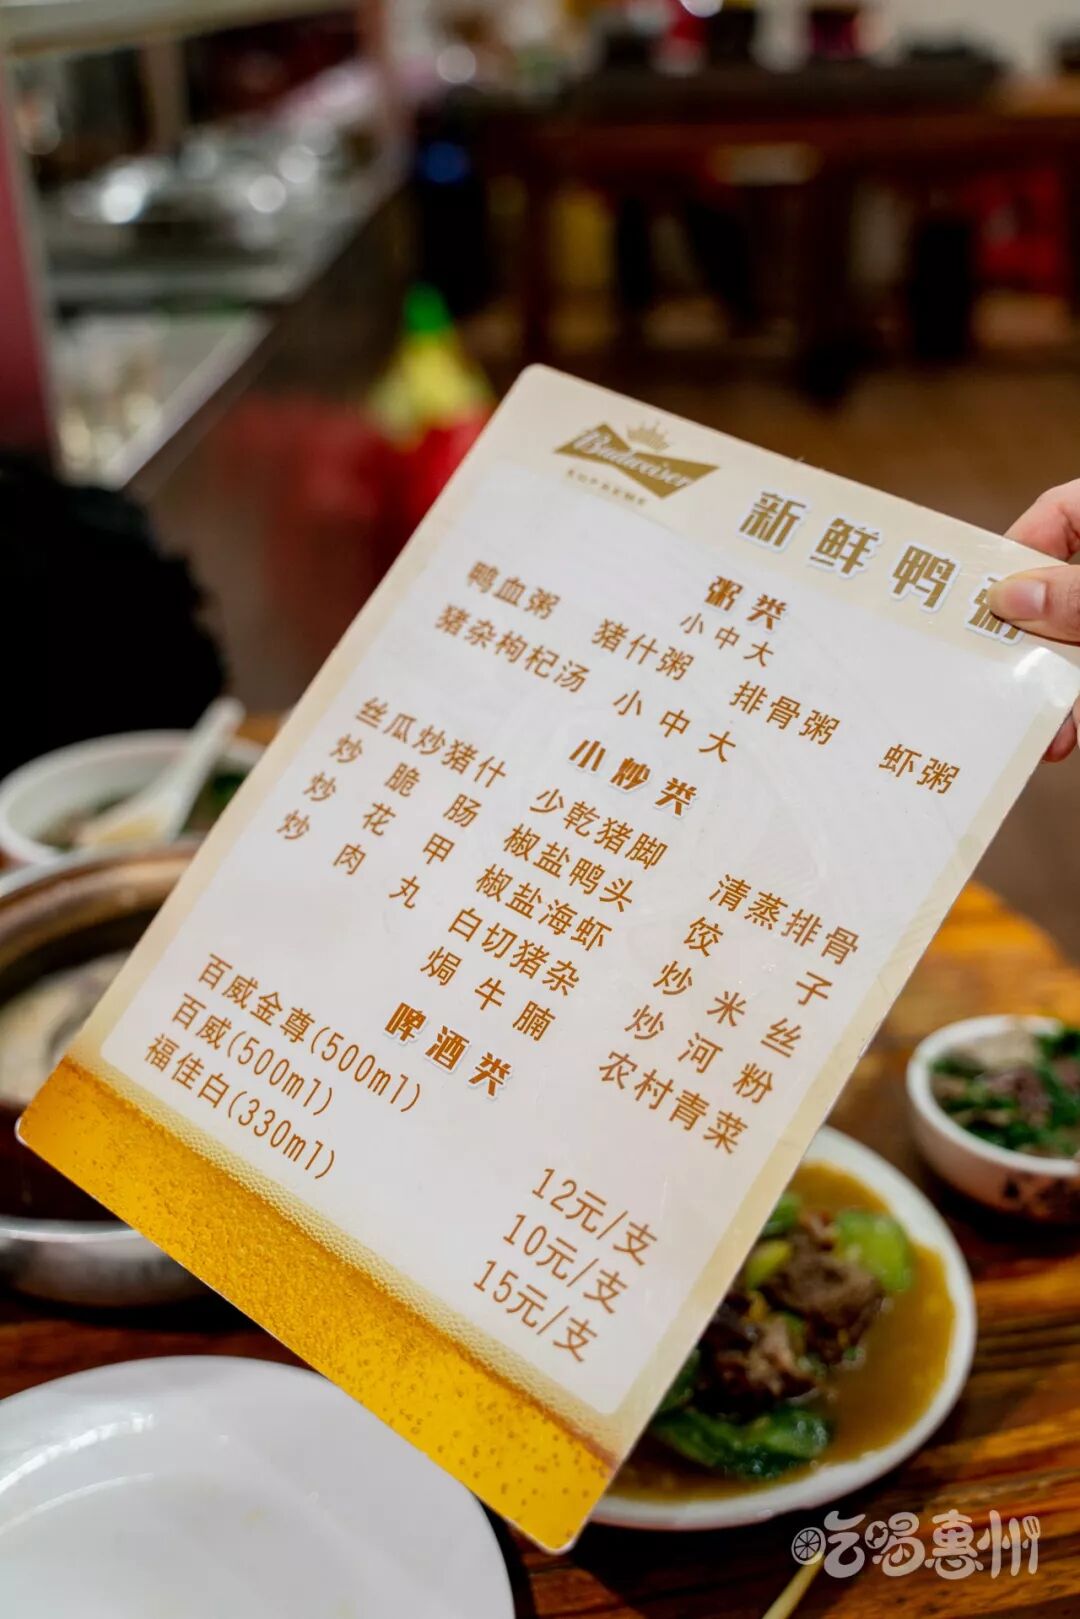 Budweiser
新鲜鸭粥
粥类
小中大
鸭血粥 猪什粥 排骨粥 虾粥
猪杂枸杞汤 小 中 大
小炒类
丝瓜炒猪什 少乾猪脚 清蒸排骨
炒脆肠 椒盐鸭头 饺子
炒花甲 椒盐海虾 炒米丝
炒肉丸 白切猪杂 炒河粉
焗牛腩 农村青菜
啤酒类
百威金尊(500ml) 12元/支
百威(500ml) 10元/支
福佳白(330ml) 15元/支
吃喝惠州